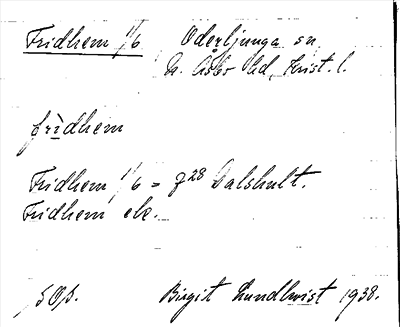 Fridhem 1/6 Oderljunga sn
N. Åsbo hd, Krist. l.
frìdhem
Fridhem 1/6 = 7 28 Dalshult.
Fridhem ek.
SOſ. Birgit Lundkvist 1938.